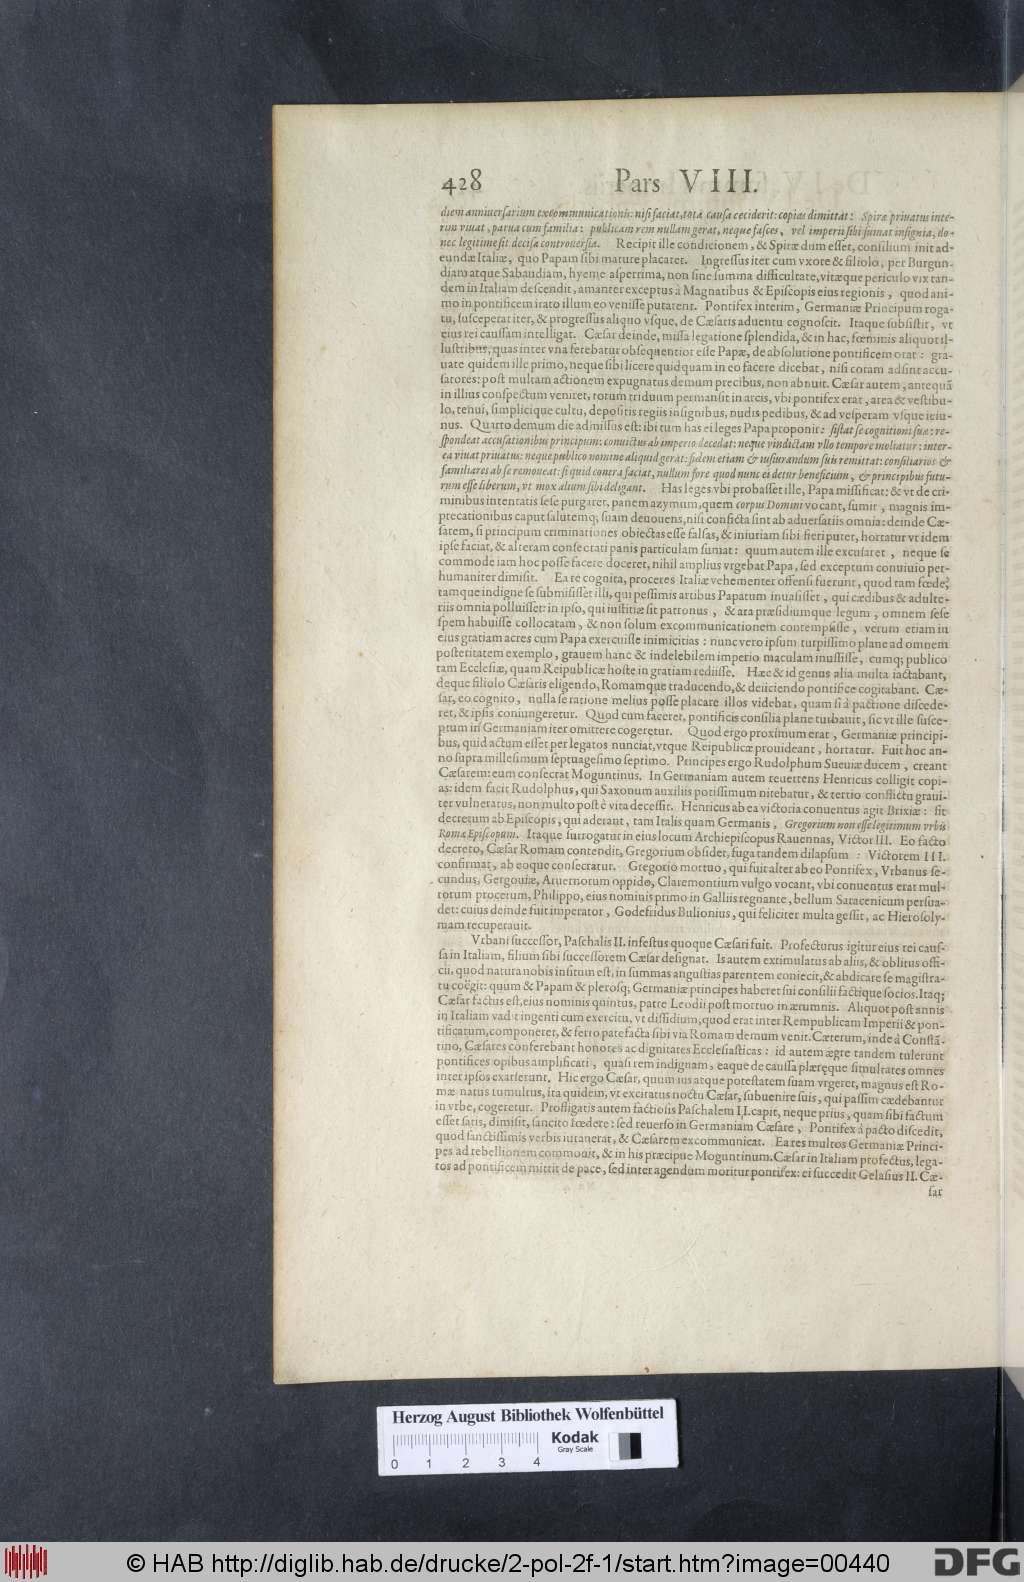 428 Pars VIII.
diem anniuersarium excommunicationis: nisi faciat, tota causa ceciderit: copias dimittat: Spiræ priuatus inte-
rim viuat, parua cum familia: publicam rem nullam gerat, neque fasces, vel imperii sibi sumat insignia, do-
nec legitime sit decisa controuersia. Recipit ille condicionem, & Spiræ dum esset, consilium init ad-
eundæ Italiæ, quo Papam sibi mature placaret. Ingressus iter cum vxore & filiolo, per Burgun-
diam atque Sabaudiam, hyeme asperrima, non sine summa difficultate, vitæque periculo vix tan-
dem in Italiam descendit, amanter exceptus à Magnatibus & Episcopis eius regionis, quod ani-
mo in pontificem irato illum eo venisse putarent. Pontifex interim, Germaniæ Principum roga-
tu, susceperat iter, & progressus aliquo vsque, de Cæsaris aduentu cognoscit. Itaque subsistit, vt
eius rei caussam intelligat. Cæsar deinde, missa legatione splendida, & in hac, fœminis aliquot il-
lustribus, quas inter vna ferebatur obsequentior esse Papæ, de absolutione pontificem orat: gra-
uate quidem ille primo, neque sibi licere quidquam in eo facere dicebat, nisi coram adsint accu-
satores: post multam actionem expugnatus demum precibus, non abnuit. Cæsar autem, antequã
in illius conspectum veniret, totum triduum permansit in arcis, vbi pontifex erat, area & vestibu-
lo, tenui, simplicique cultu, depositis regiis insignibus, nudis pedibus, & ad vesperam vsque ieiu-
nus. Quarto demum die admissus est: ibi tum has ei leges Papa proponit: sistat se cognitioni suæ: re-
spondeat accusationibus principum: conuictus ab imperio decedat: neque vindictam vllo tempore moliatur: inter-
ea viuat priuatus: neque publico nomine aliquid gerat: fidem etiam & iusiurandum suis remittat: consiliarios &
familiares ab se remoueat: si quid contra faciat, nullum fore quod nunc ei detur beneficium, & principibus futu-
rum esse liberum, vt mox alium sibi deligant. Has leges vbi probasset ille, Papa missificat: & vt de cri-
minibus intentatis sese purgaret, panem azymum, quem corpus Domini vocant, sumit, magnis im-
precationibus caput salutemq; suam deuouens, nisi conficta sint ab aduersariis omnia: deinde Cæ-
sarem, si principum criminationes obiectas esse falsas, & iniuriam sibi fieri putet, hortatur vt idem
ipse faciat, & alteram consecrati panis particulam sumat: quum autem ille excusaret, neque se
commode iam hoc posse facere doceret, nihil amplius vrgebat Papa, sed exceptum conuiuio per-
humaniter dimisit. Ea re cognita, proceres Italiæ vehementer offensi fuerunt, quod tam fœde,
tamque indigne se submisisset illi, qui pessimis artibus Papatum inuasisset, qui cædibus & adulte-
riis omnia polluisset: in ipso, qui iustitiæ sit patronus, & ara præsidiumque legum, omnem sese
spem habuisse collocatam, & non solum excommunicationem contempsisse, verum etiam in
eius gratiam acres cum Papa exercuisse inimicitias: nunc vero ipsum turpissimo plane ad omnem
posteritatem exemplo, grauem hanc & indelebilem imperio maculam inussisse, cumq; publico
tam Ecclesiæ, quam Reipublicæ hoste in gratiam rediisse. Hæc & id genus alia multa iactabant,
deque filiolo Cæsaris eligendo, Romamque traducendo, & deiiciendo pontifice cogitabant. Cæ-
sar, eo cognito, nulla se ratione melius posse placare illos videbat, quam si à pactione discede-
ret, & ipsis coniungeretur. Quod cum faceret, pontificis consilia plane turbauit, sic vt ille susce-
ptum in Germaniam iter omittere cogeretur. Quod ergo proximum erat, Germaniæ principi-
bus, quid actum esset per legatos nunciat, vtque Reipublicæ prouideant, hortatur. Fuit hoc an-
no supra millesimum septuagesimo septimo. Principes ergo Rudolphum Sueuiæ ducem, creant
Cæsarem: eum consecrat Moguntinus. In Germaniam autem reuertens Henricus colligit copi-
as: idem facit Rudolphus, qui Saxonum auxiliis potissimum nitebatur, & tertio conflictu graui-
ter vulneratus, non multo post è vita decessit. Henricus ab ea victoria conuentus agit Brixiæ: fit
decretum ab Episcopis, qui aderant, tam Italis quam Germanis, Gregorium non esse legitimum vrbis
Romæ Episcopum. Itaque surrogatur in eius locum Archiepiscopus Rauennas, Victor III. Eo facto
decreto, Cæsar Romam contendit, Gregorium obsidet, fuga tandem dilapsum: Victorem III.
confirmat, ab eoque consecratur. Gregorio mortuo, qui fuit alter ab eo Pontifex, Vrbanus se-
cundus, Gergouiæ, Aruernorum oppido, Claremontium vulgo vocant, vbi conuentus erat mul-
torum procerum, Philippo, eius nominis primo in Galliis regnante, bellum Saracenicum persua-
det: cuius deinde fuit imperator, Godefridus Bulionius, qui feliciter multa gessit, ac Hierosoly-
mam recuperauit.
Vrbani successor, Paschalis II. infestus quoque Cæsari fuit. Profecturus igitur eius rei caus-
sa in Italiam, filium sibi successorem Cæsar designat. Is autem extimulatus ab aliis, & oblitus offi-
cii, quod natura nobis insitum est, in summas angustias parentem coniecit, & abdicare se magistra-
tu coëgit: quum & Papam & plerosq; Germaniæ principes haberet sui consilii factique socios. Itaq;
Cæsar factus est, eius nominis quintus, patre Leodii post mortuo in ærumnis. Aliquot post annis
in Italiam vadit ingenti cum exercitu, vt dissidium, quod erat inter Rempublicam Imperii & pon-
tificatum, componeret, & ferro patefacta sibi via Romam demum venit. Cæterum, inde à Constã-
tino, Cæsares conferebant honores ac dignitates Ecclesiasticas: id autem ægre tandem tulerunt
pontifices opibus amplificati, quasi rem indignam, eaque de caussa plæręque simultates omnes
inter ipsos exarserunt. Hic ergo Cæsar, quum ius atque potestatem suam vrgeret, magnus est Ro-
mæ natus tumultus, ita quidem, vt excitatus noctu Cæsar, subuenire suis, qui passim cædebantur
in vrbe, cogeretur. Profligatis autem factiosis Paschalem II. capit, neque prius, quam sibi factum
esset satis, dimisit, sancito fœdere: sed reuerso in Germaniam Cæsare, Pontifex à pacto discedit,
quod sanctissimis verbis iurauerat, & Cæsarem excommunicat. Ea res multos Germaniæ Princi-
pes ad rebellionem commouit, & in his præcipue Moguntinum. Cæsar in Italiam profectus, lega-
tos ad pontificem mittit de pace, sed inter agendum moritur pontifex: ei succedit Gelasius II. Cæ-
sar
Herzog August Bibliothek Wolfenbüttel
Kodak
Gray Scale
0 1 2 3 4
© HAB http://diglib.hab.de/drucke/2-pol-2f-1/start.htm?image=00440
DFG